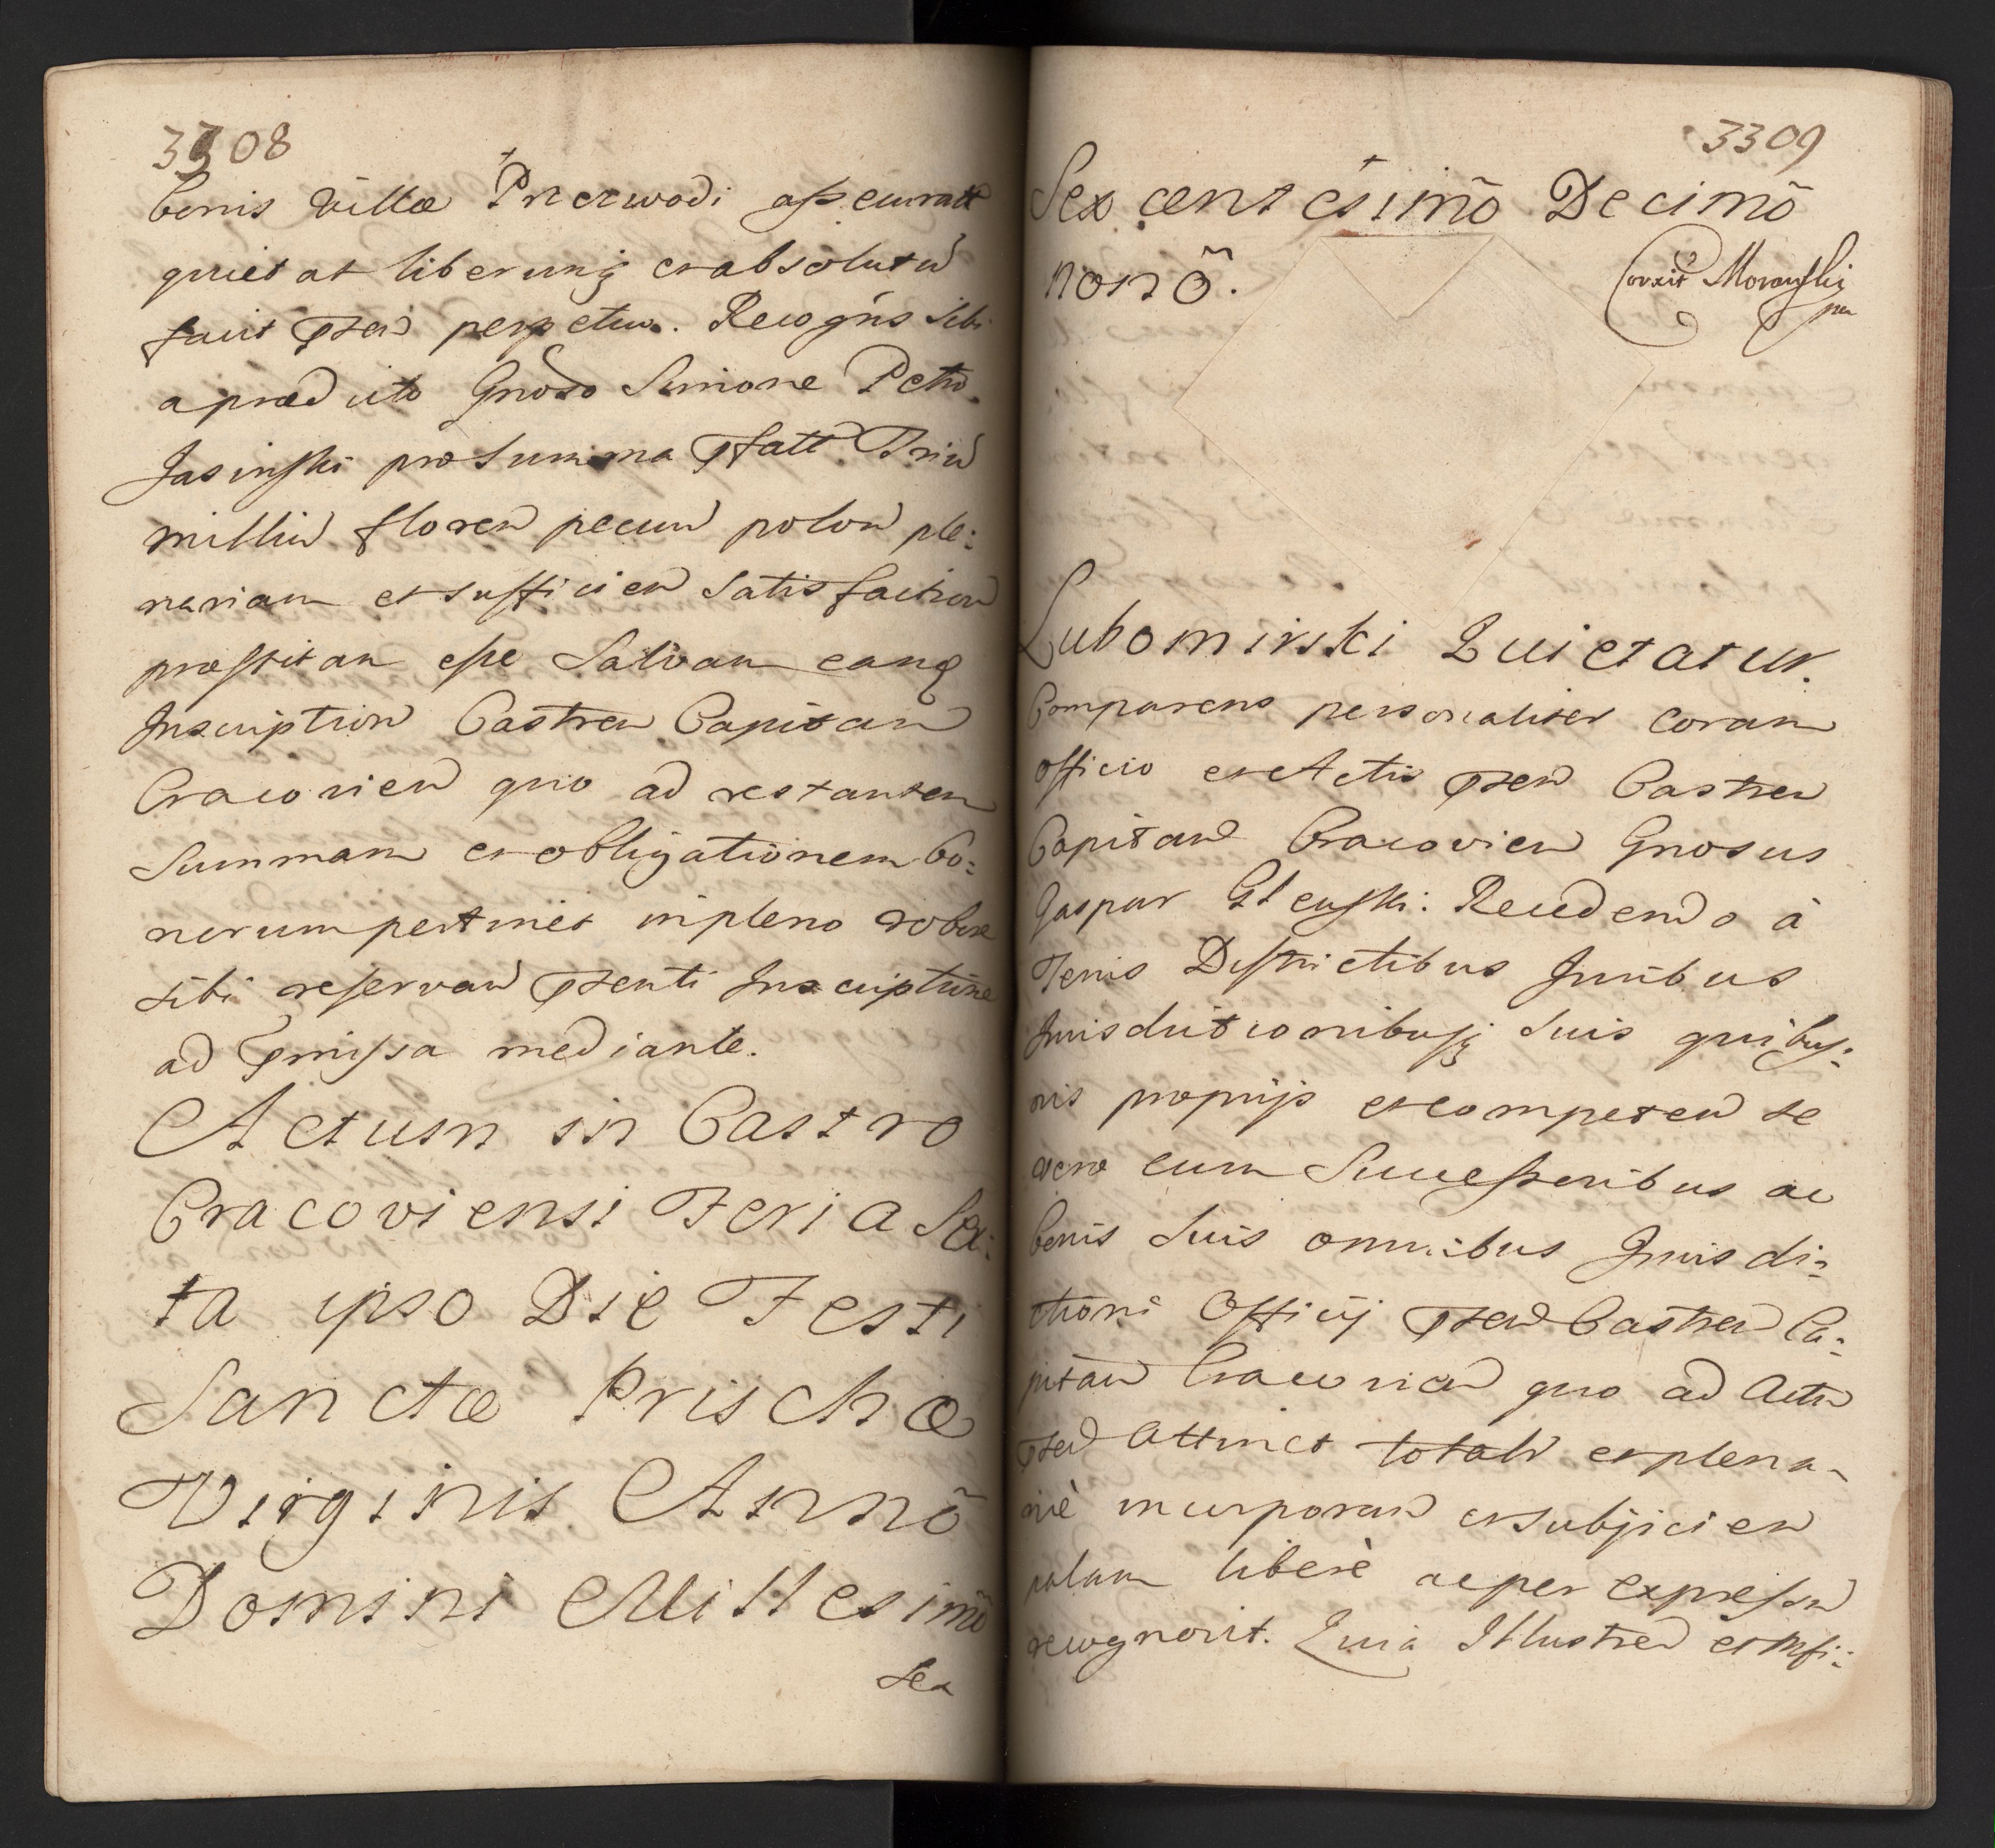 3308
bonis Villæ Przewodi assecuratt
quietat liberumq et absolutũ
facit Pñtiũ perpetuo. Recogñs sibi
a prædicto Gnoso Simone Petro
Jasinski pro summa Pfatt Triũ
milliũ florenũ pecuñ poloñ ple:
nariam et sufficieñ Satisfactioñ
præstitam esse Salvam eamq
Inscriptioñ Castreñ Capitañ
Cracovieñ quo ad restantem
Summam et obligationem Bo:
norum pertinet in pleno robore
sibi reservañ Pñsenti Inscriptione
ad Pmissa mediante.
Actum in Castro
Cracoviensi Feria Sex:
ta ipso Die Festi
Sanctæ Prischæ
Virginis Annõ
Domini Millesimõ
Sex
3309
Sexcentesimõ Decimõ
nonõ.
Correxit Morawski
mp
Lubomirski Quietatur.
Comparens personaliter coram
officio et Actis Pñseñ Castreñ
Capitañ Cracovieñ Gnosus
Gaspar Recedendo à
Terris Districtibus Juribus
Jurisdictionibusq suis quibus:
vis proprijs et competeñ se
vero cum Successoribus ac
bonis suis omnibus Jurisdi:
ctioni Officij Pñseñ Castreñ Ca:
pitañ Cracovieñ quo ad Actũ
Pñseñ attinet totalr et plena:
riè incorporañ et subjicieñ
palam liberè ac per expressũ
recognovit. Quia Illustreñ et Mfi: